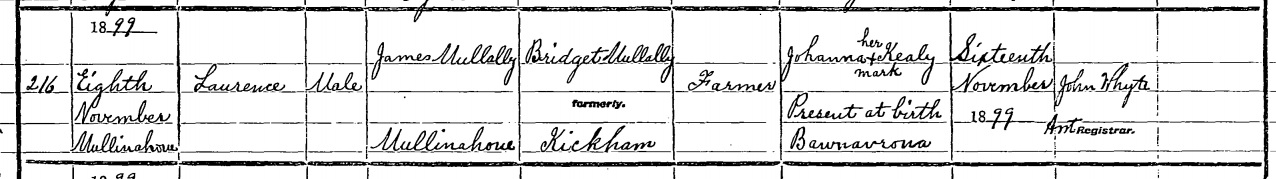 1899
216 Eighth November Mullinahone
Laurence
Male
James Mullally
Mullinahone
Bridget Mullally
formerly.
Kickham
Farmer
Johanna her x mark Kealy
Present at birth
Bawnavrona
Sixteenth
November
1899
John Whyte
Registrar.